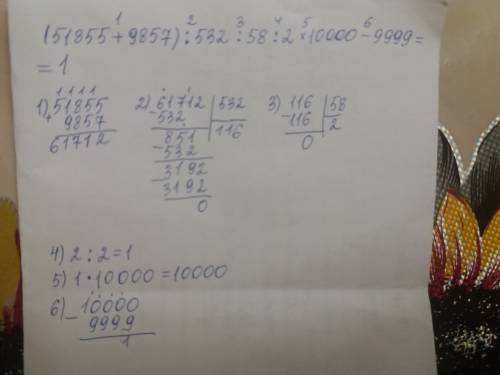 1 2 3 4 5 6
(51855+9857):532:58:2×10000-9999=
=1
1111
1) 51855
+ 9857
61712
2) 61712 | 532
- 532 | 116
851
- 532
3192
- 3192
0
3) 116 | 58
- 116 | 2
0
4) 2:2=1
5) 1·10000=10000
6) 10000
- 9999
1